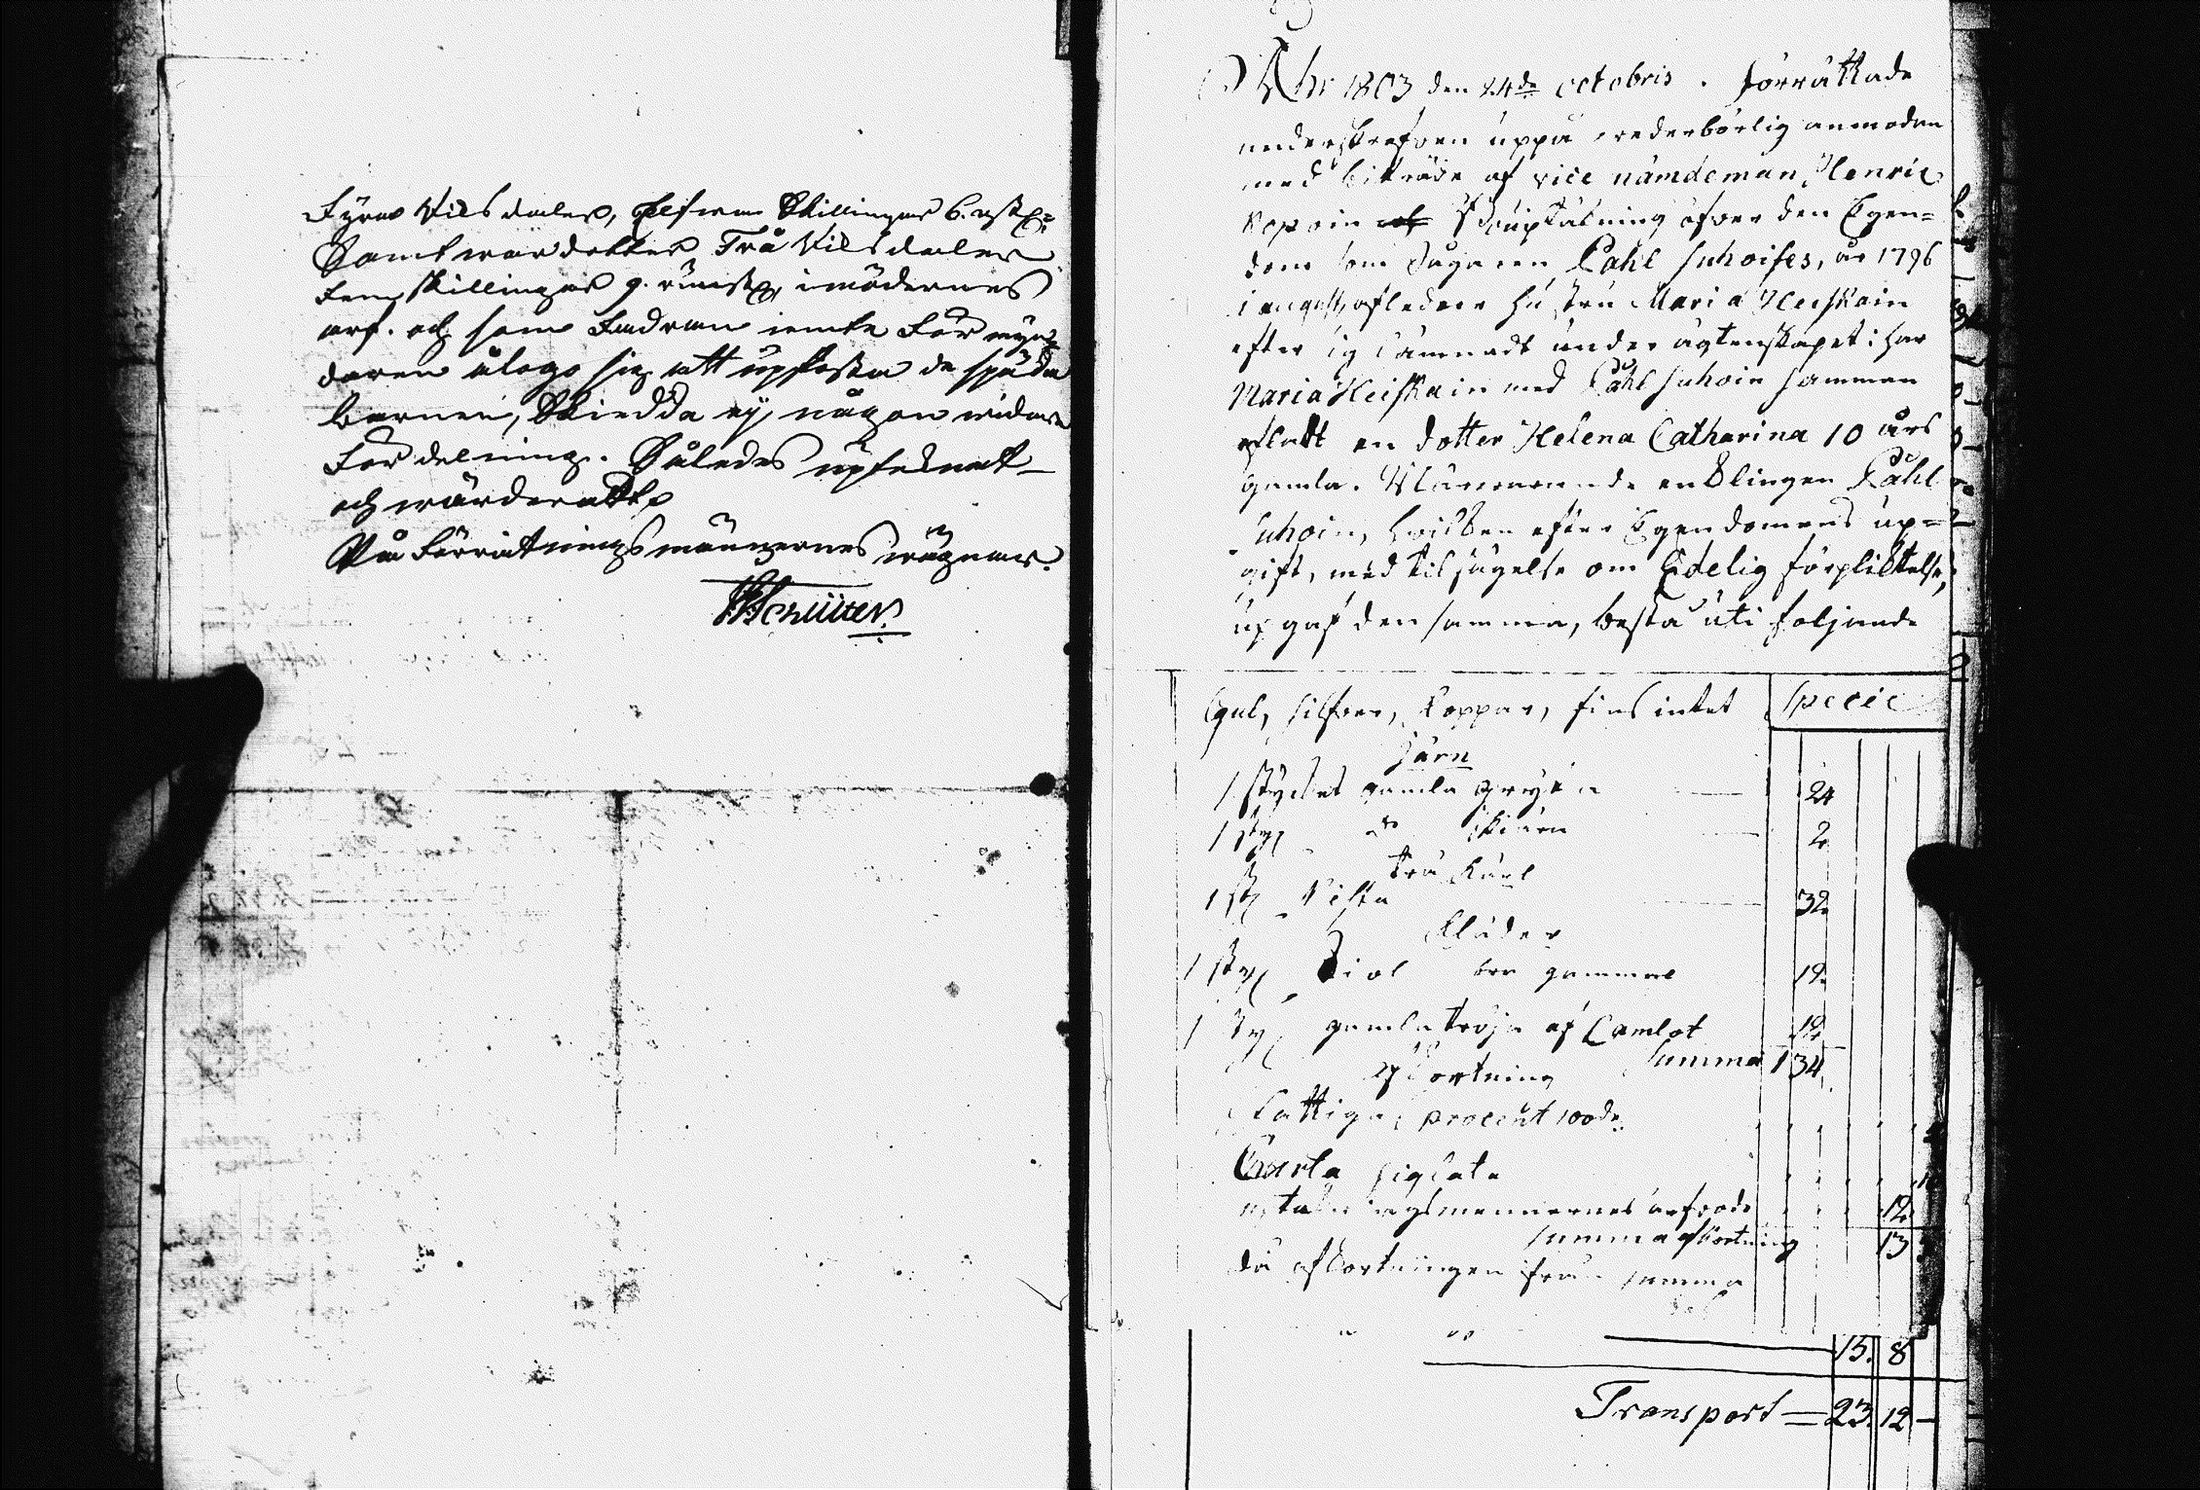 Fyra Riksdaler, Elfwa Skillingar 6. rst.
Samt war dotter Två Riksdaler
fem skillingar 9. runst. i mödernes
arf. och som Fadren jemte För myn
daren åtogo sig att upfostra de späda
barnen, Skiedde ej någon widare
Fördelning. Således upteknat
och wärderatt
På Förrätnings männernes wägnar.
Ahr 1803 den 24de octobris. förrättade
underskrefven uppå wederbörlig anmodan
med biträde af vice nämdeman Henric
Kopoin Bouptäkning öfver den Egen=
dom som Sågaren Påhl Juhoises, år 1796
i augusti afledne hustru Maria Heiskain
efter sig lämnadt under ägtenskapet: har
Maria Heiskain med Påhl Juhoin samman
afladt en dotter Helena Catharina 10 års
gamla. Närvarande enklingen Påhl
Juhoin, hvilken efter Egendomens up=
gift, med tilsägelse om Edelig förpliktelse,
up gaf den samma, bestå uti följande
Gul, silfver, Koppar, fins intet Specie
Järn
1 stycket gamla gryta 24
1 sty do skiära 2
trä Kärl
1 st Kista 32
Kläder
1 sty Kiol gammal 12
1 sty gamla tröja af Camlot 12
Summa 1 34
afkortning
Fattiga procent 100de
Charta sigilata
uptäknings mennernes arfvode 12
summa afkortning 13
då afkortningen från summa
15. 8
Transport = 23. 12 -